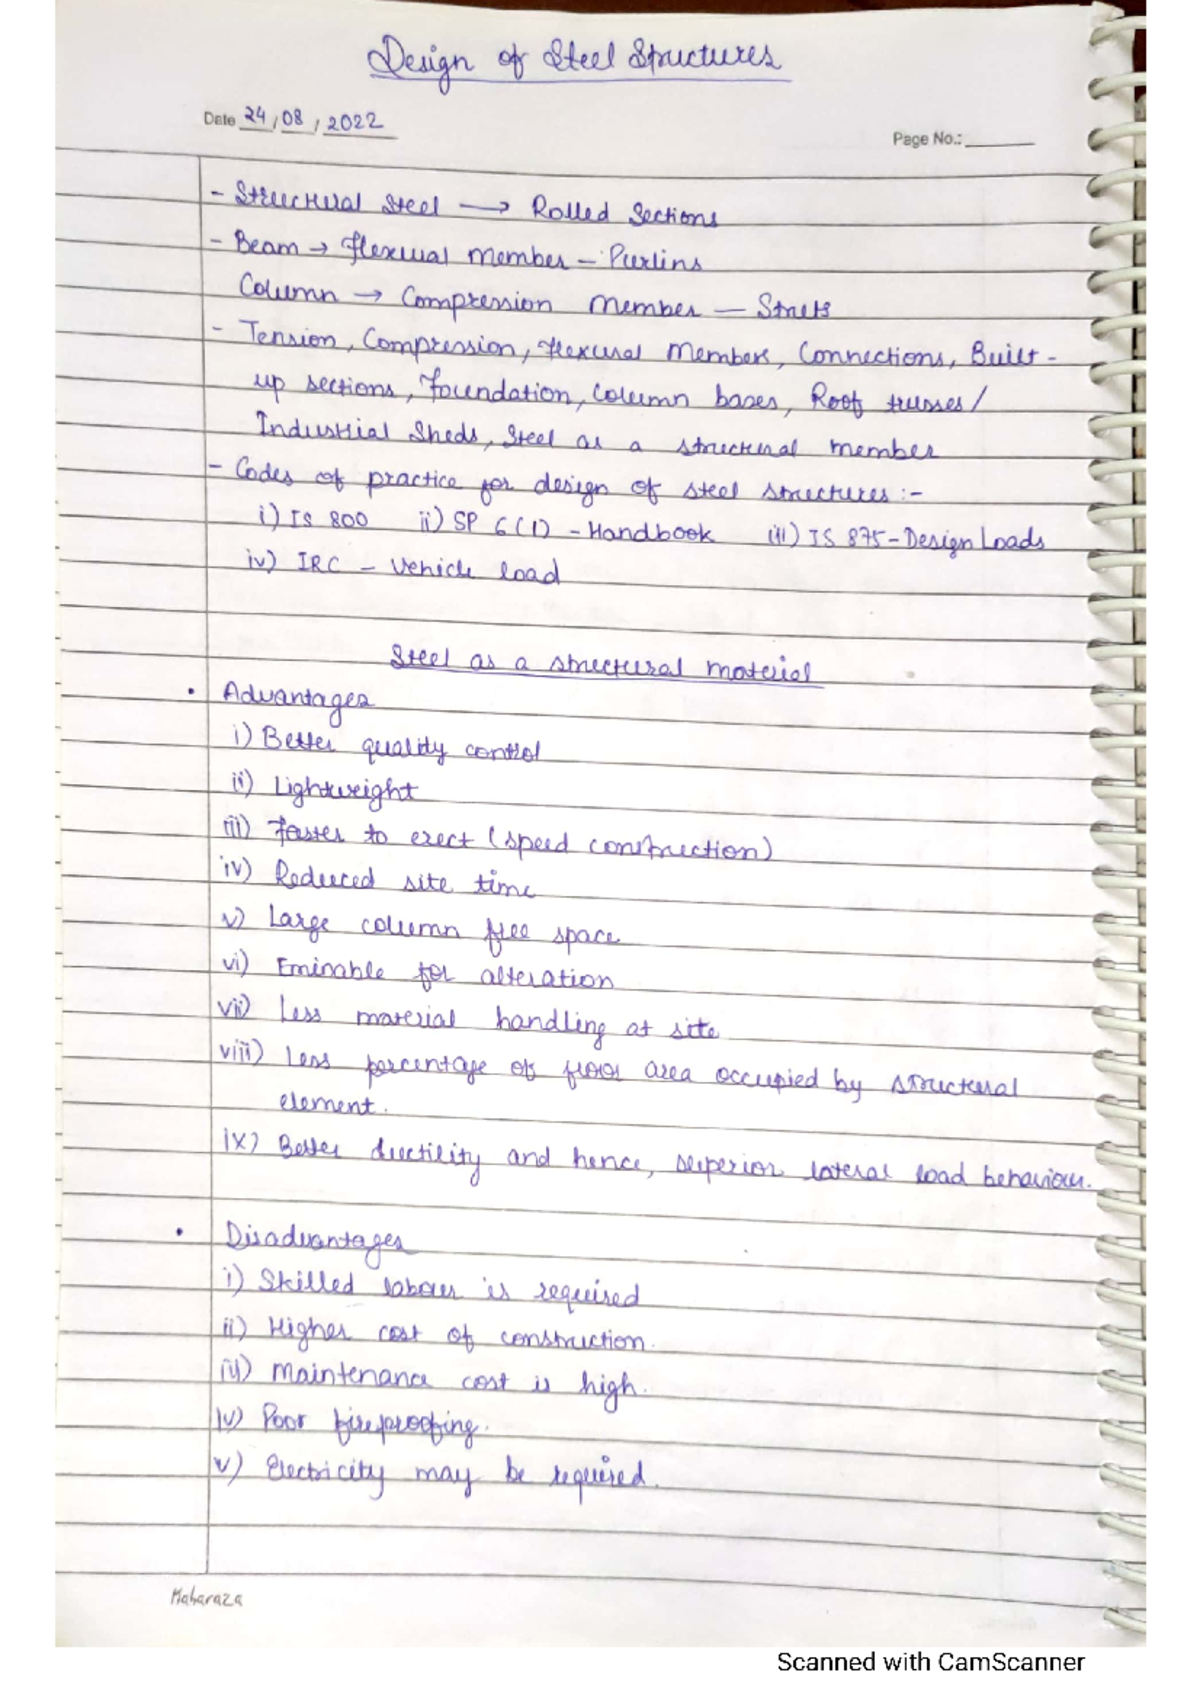 Design of Steel Structures
Date 24/08/2022
Page No.:
- Structural Steel → Rolled Sections
- Beam → flexural member - Purlins
Column → Compression Member — Struts
- Tension, Compression, flexural Members, Connections, Built-
up sections, foundation, Column bases, Roof trusses/
Industrial Sheds, Steel as a structural member
- Codes of practice for design of steel structures :-
i) IS 800 ii) SP 6(1) - Handbook iii) IS 875 - Design Loads
iv) IRC - Vehicle load
Steel as a structural material
• Advantages
i) Better quality control
ii) Lightweight
iii) Faster to erect (speed construction)
iv) Reduced site time
v) Large column free space
vi) Eminable for alteration
vii) Less material handling at site
viii) Less percentage of floor area occupied by structural
element.
ix) Better ductility and hence, superior lateral load behaviour.
• Disadvantages
i) Skilled labour is required
ii) Higher cost of construction.
iii) Maintenance cost is high.
iv) Poor fireproofing.
v) Electricity may be required.
Maharaza
Scanned with CamScanner